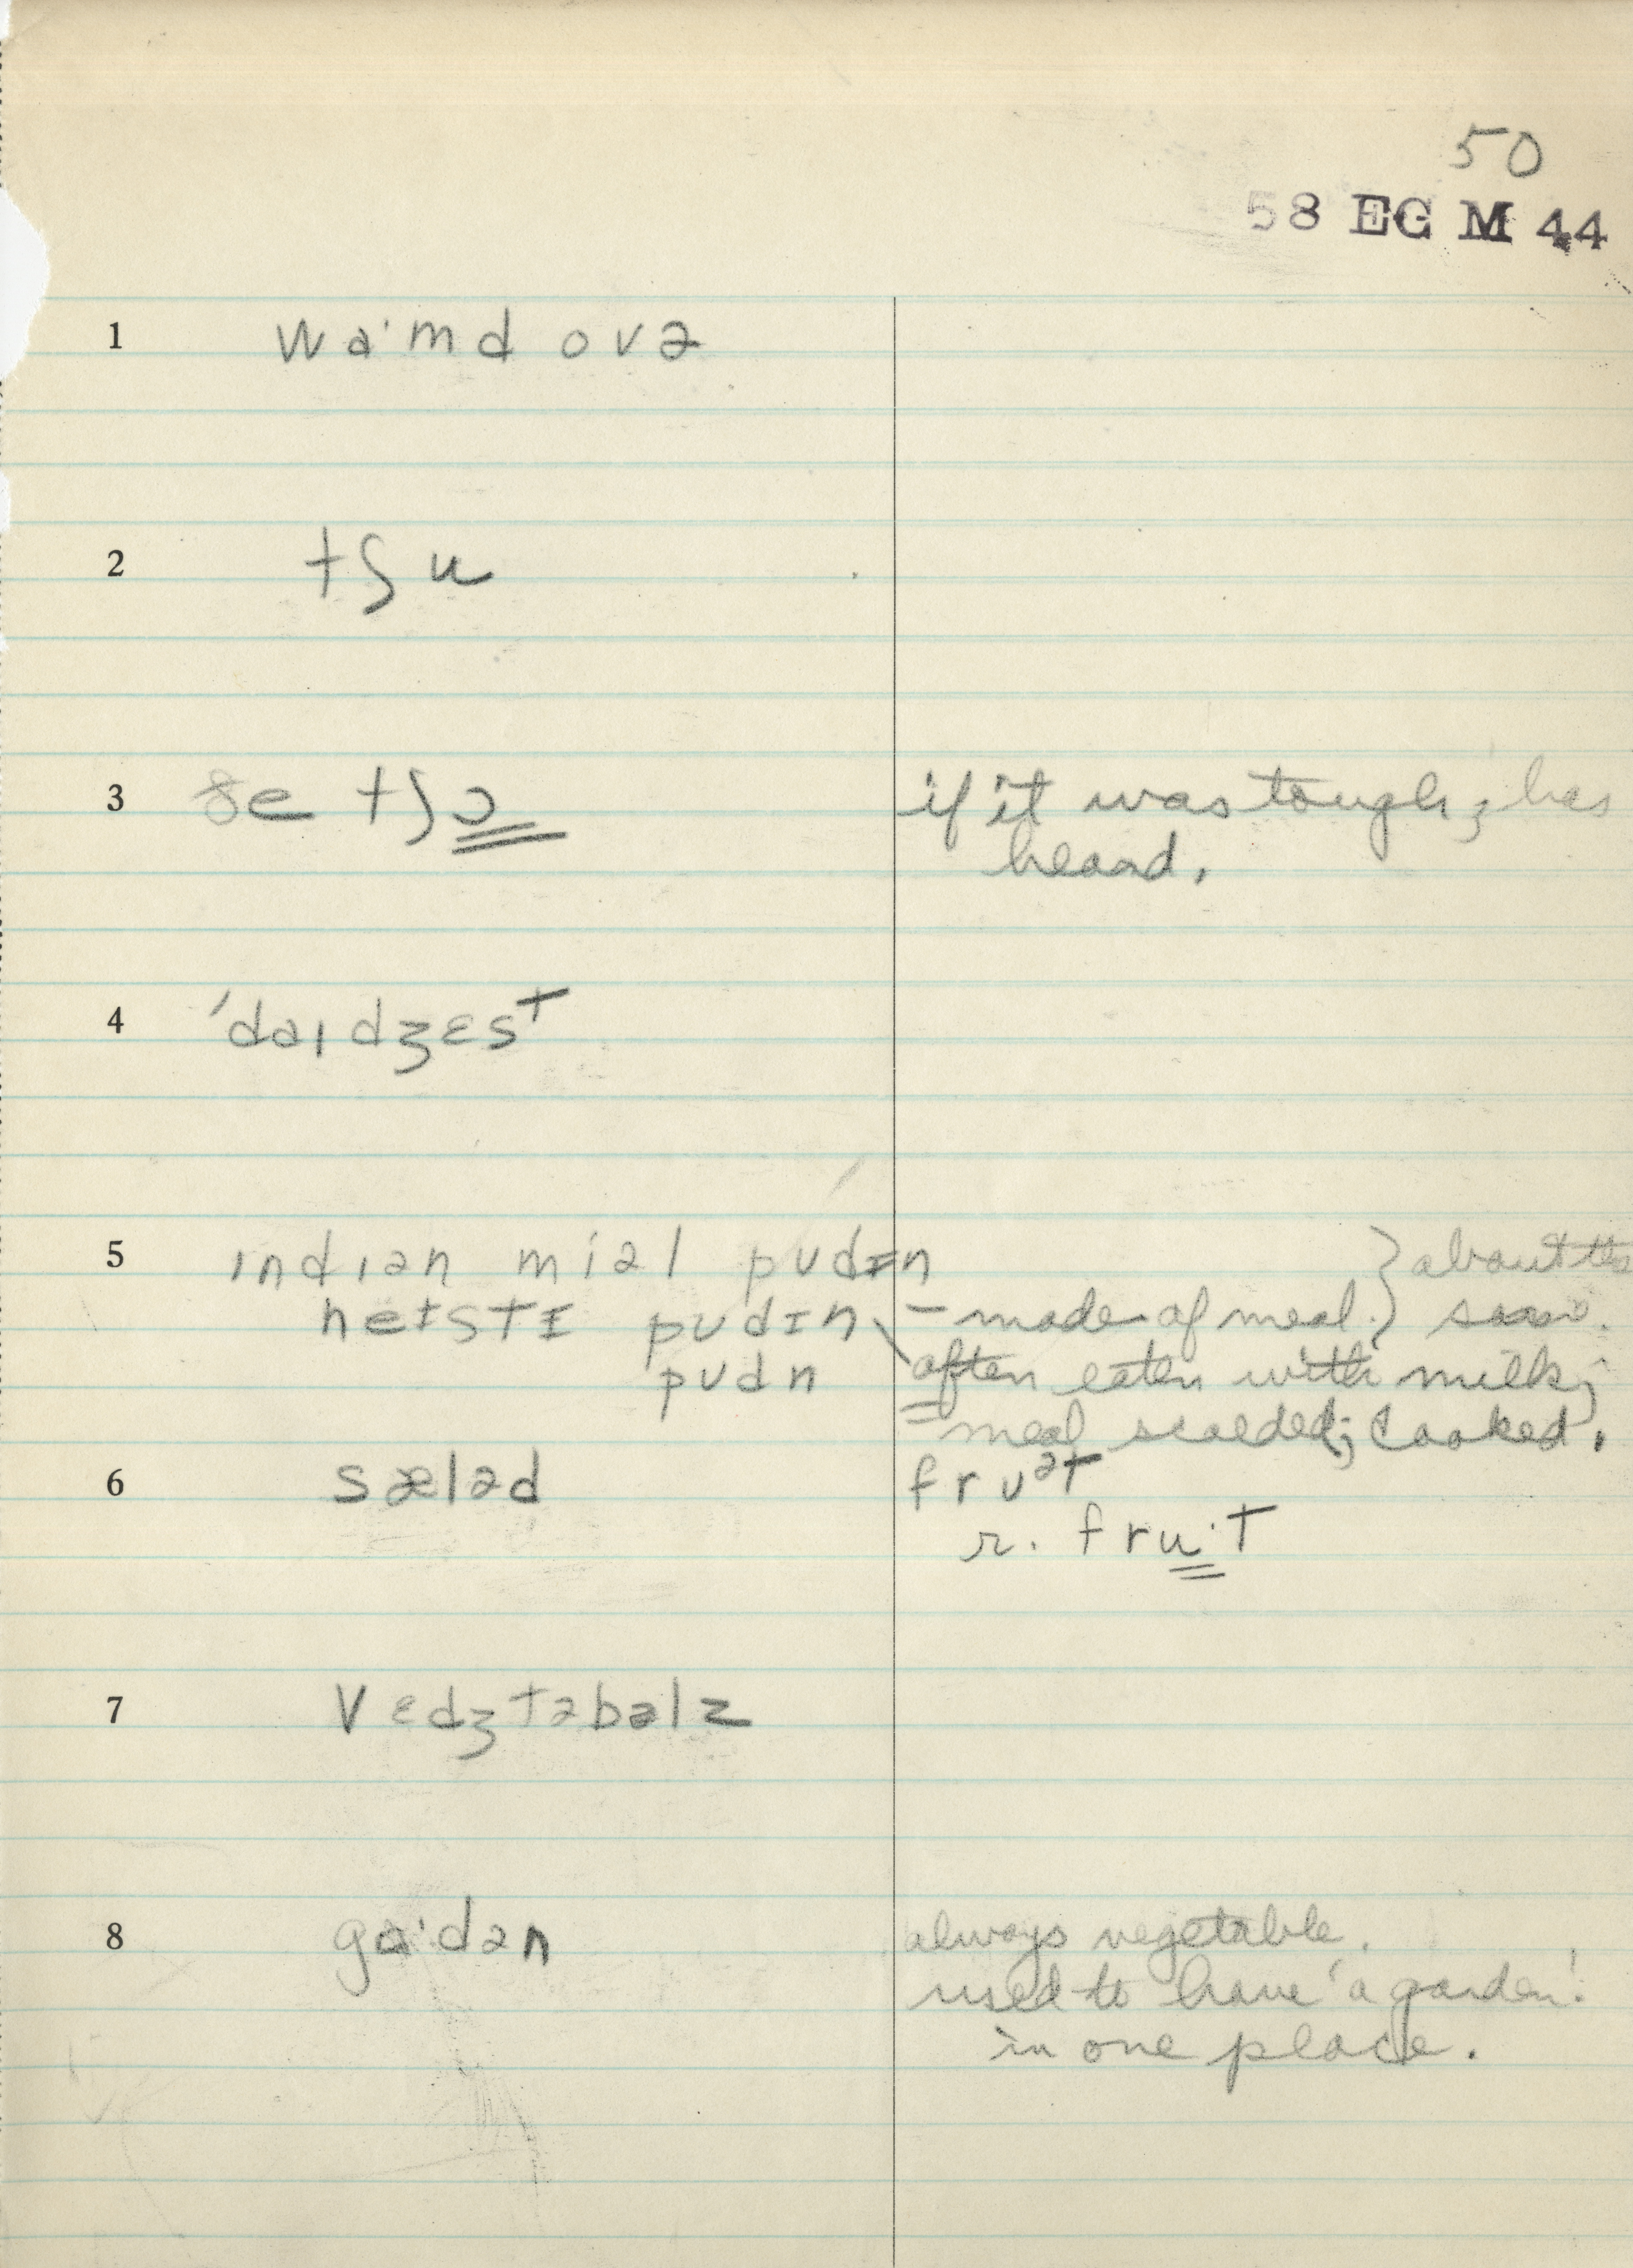 50
58 EG M 44
1 wa·md ovə
2 tʃu
3 ðe tʃɔ if it was tough; has
heard.
4 ˈdaɪdʒɛst
5 ɪndɪən miəl pudɪn } about the
heɪstɪ pudɪn – made of meal. } same.
pudn often eaten with milk;
meal scalded; cooked.
6 sæləd fruᵊt
r. fru·t
7 vɛdʒtəbəlz
8 ga·dən always vegetable.
used to have 'a garden'.
in one place.